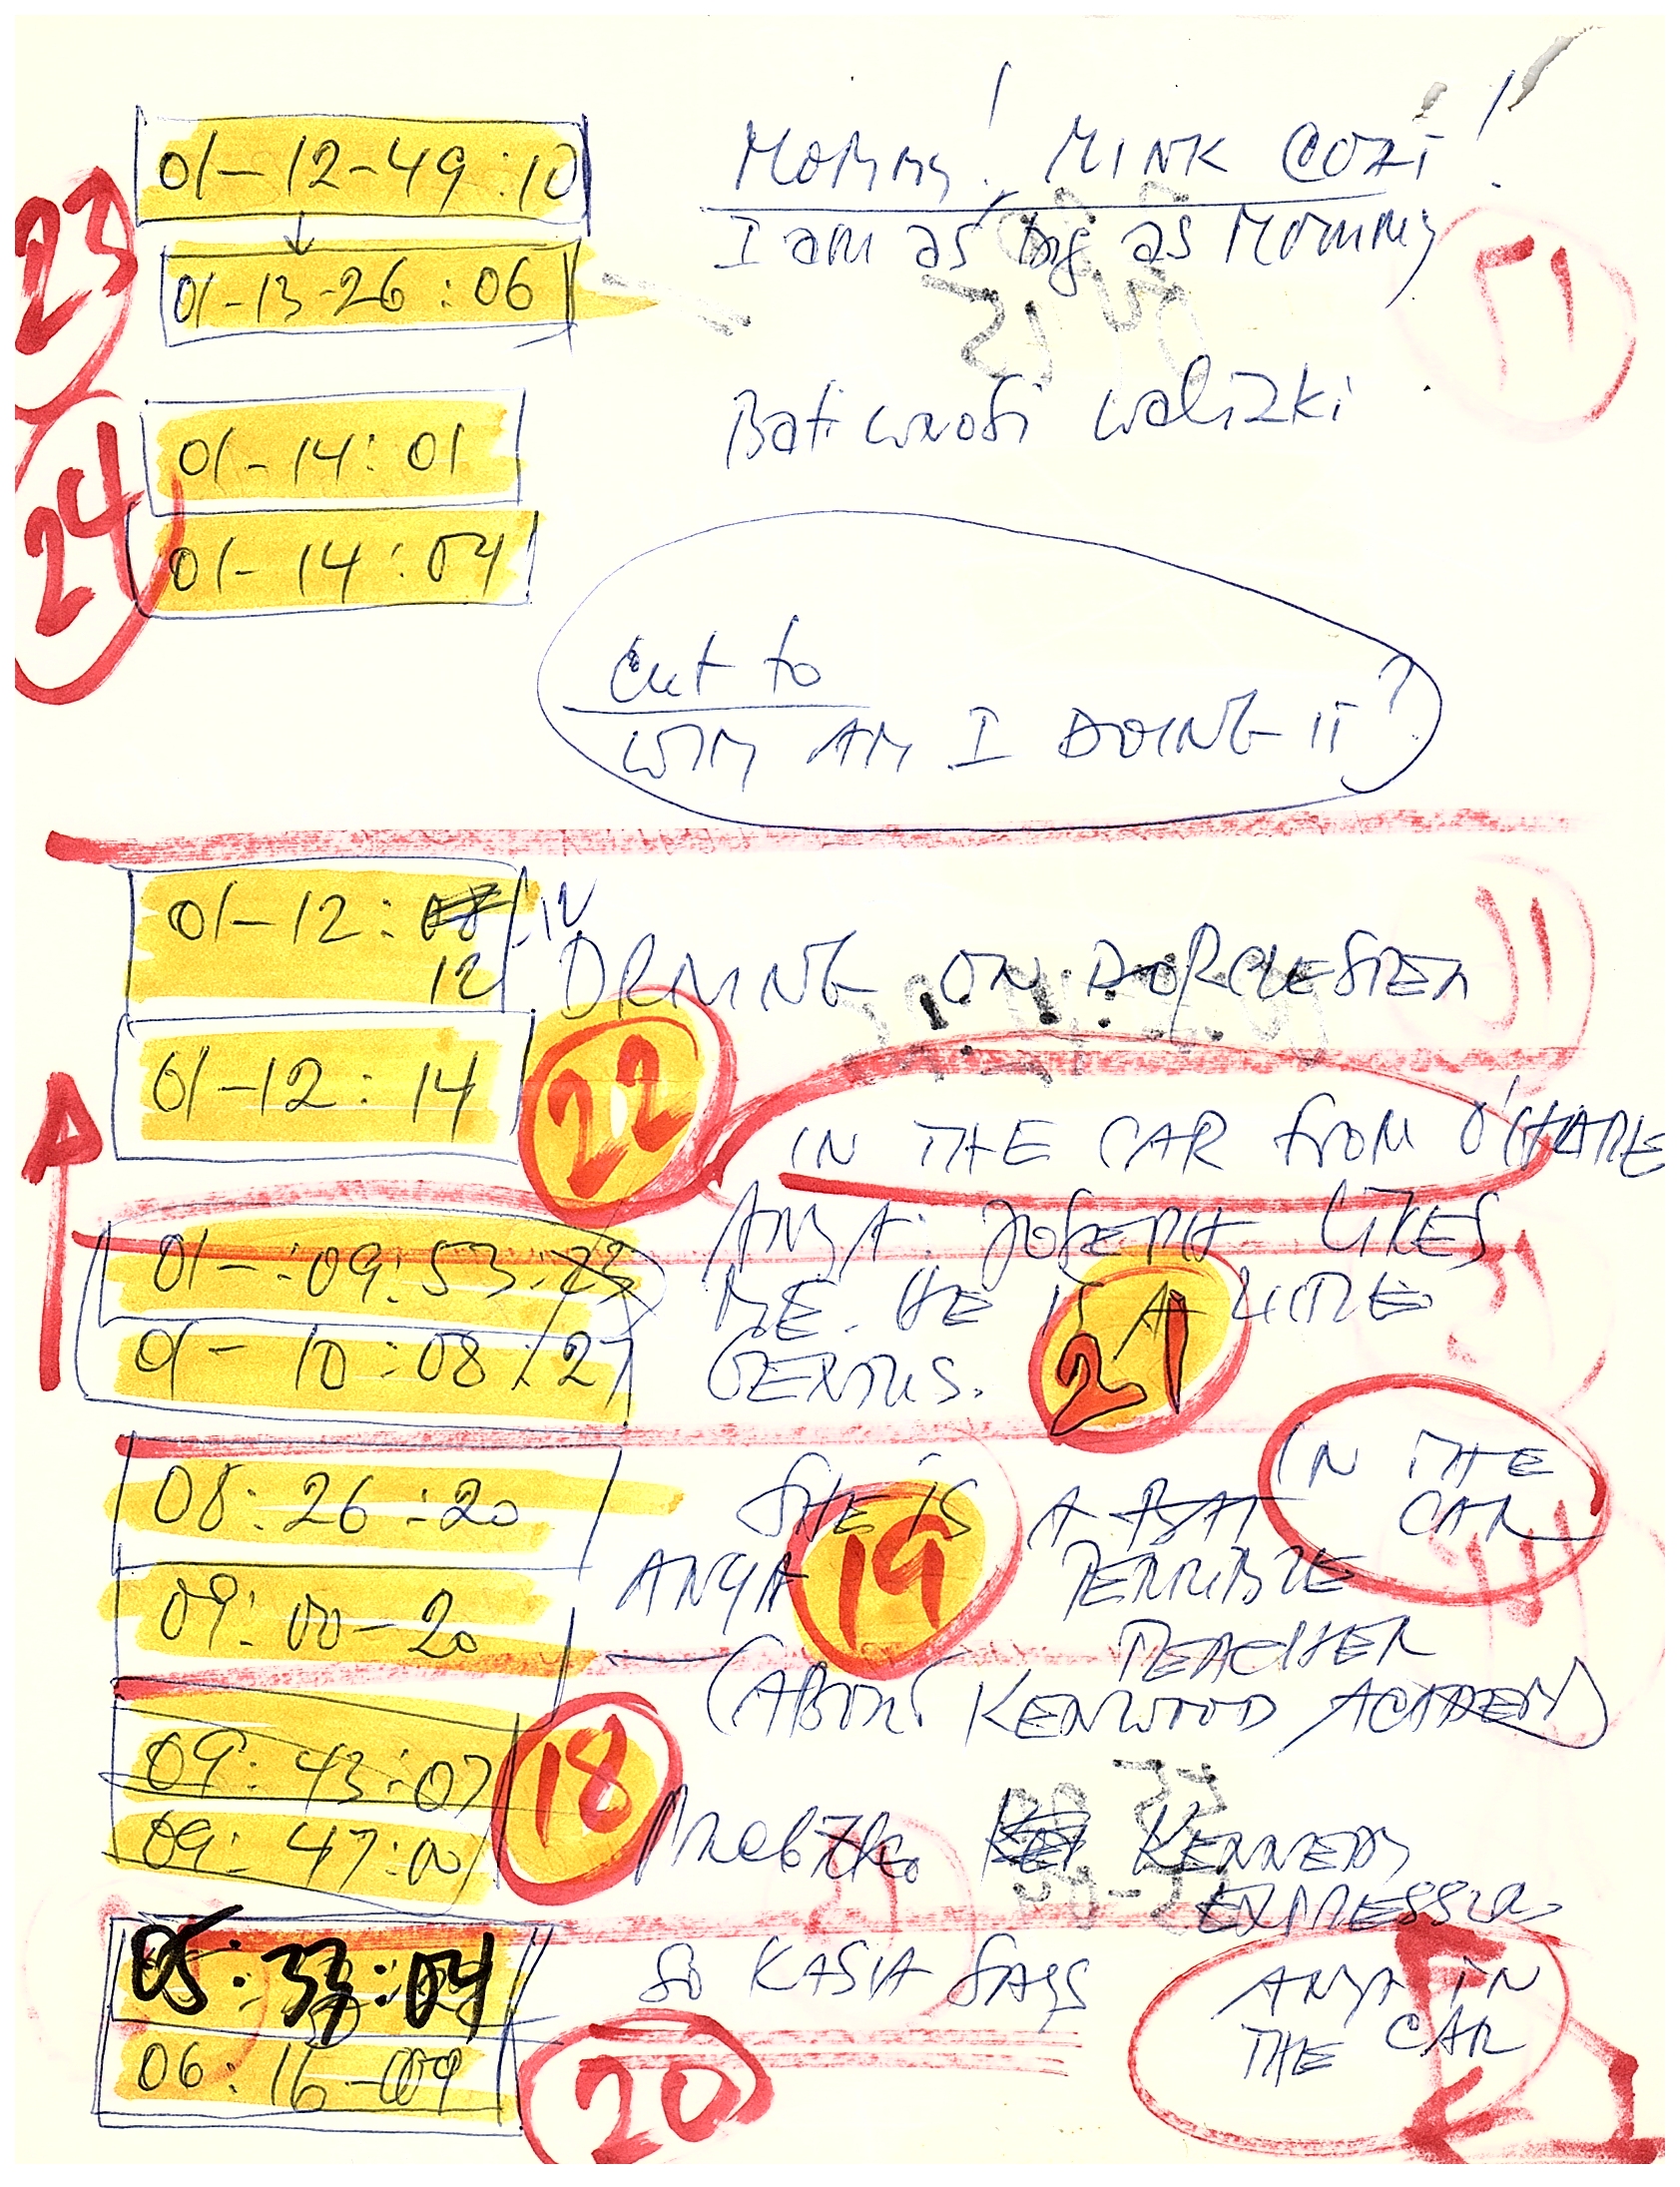 01-12-49:10
MOMMY! MINK COZI!
23
I am as big as Mommy
01-13-26:06
01-14:01
Bati wnosi walizki
24
01-14:04
cut to
WHY AM I DOING IT?
01-12:
12
DRIVING ON DORCHESTER
01-12:14
22
IN THE CAR from O'HARE
01-:09:53:23
ANYA: JOSEPH LIKES
ME. HE IS A LITTLE
01-10:08:27
21
GENIUS.
IN THE
CAR
08:26:20
SHE IS A BAT
ANYA
19
TERRIBLE
09:00-20
TEACHER
(ABOUT KENWOOD ACADEMY)
09:43:07
18
KENNEDY
09:47:00
EXPRESSWAY
05:33:04
SO KASIA SAYS
ANYA IN
THE CAR
06:16-09
20